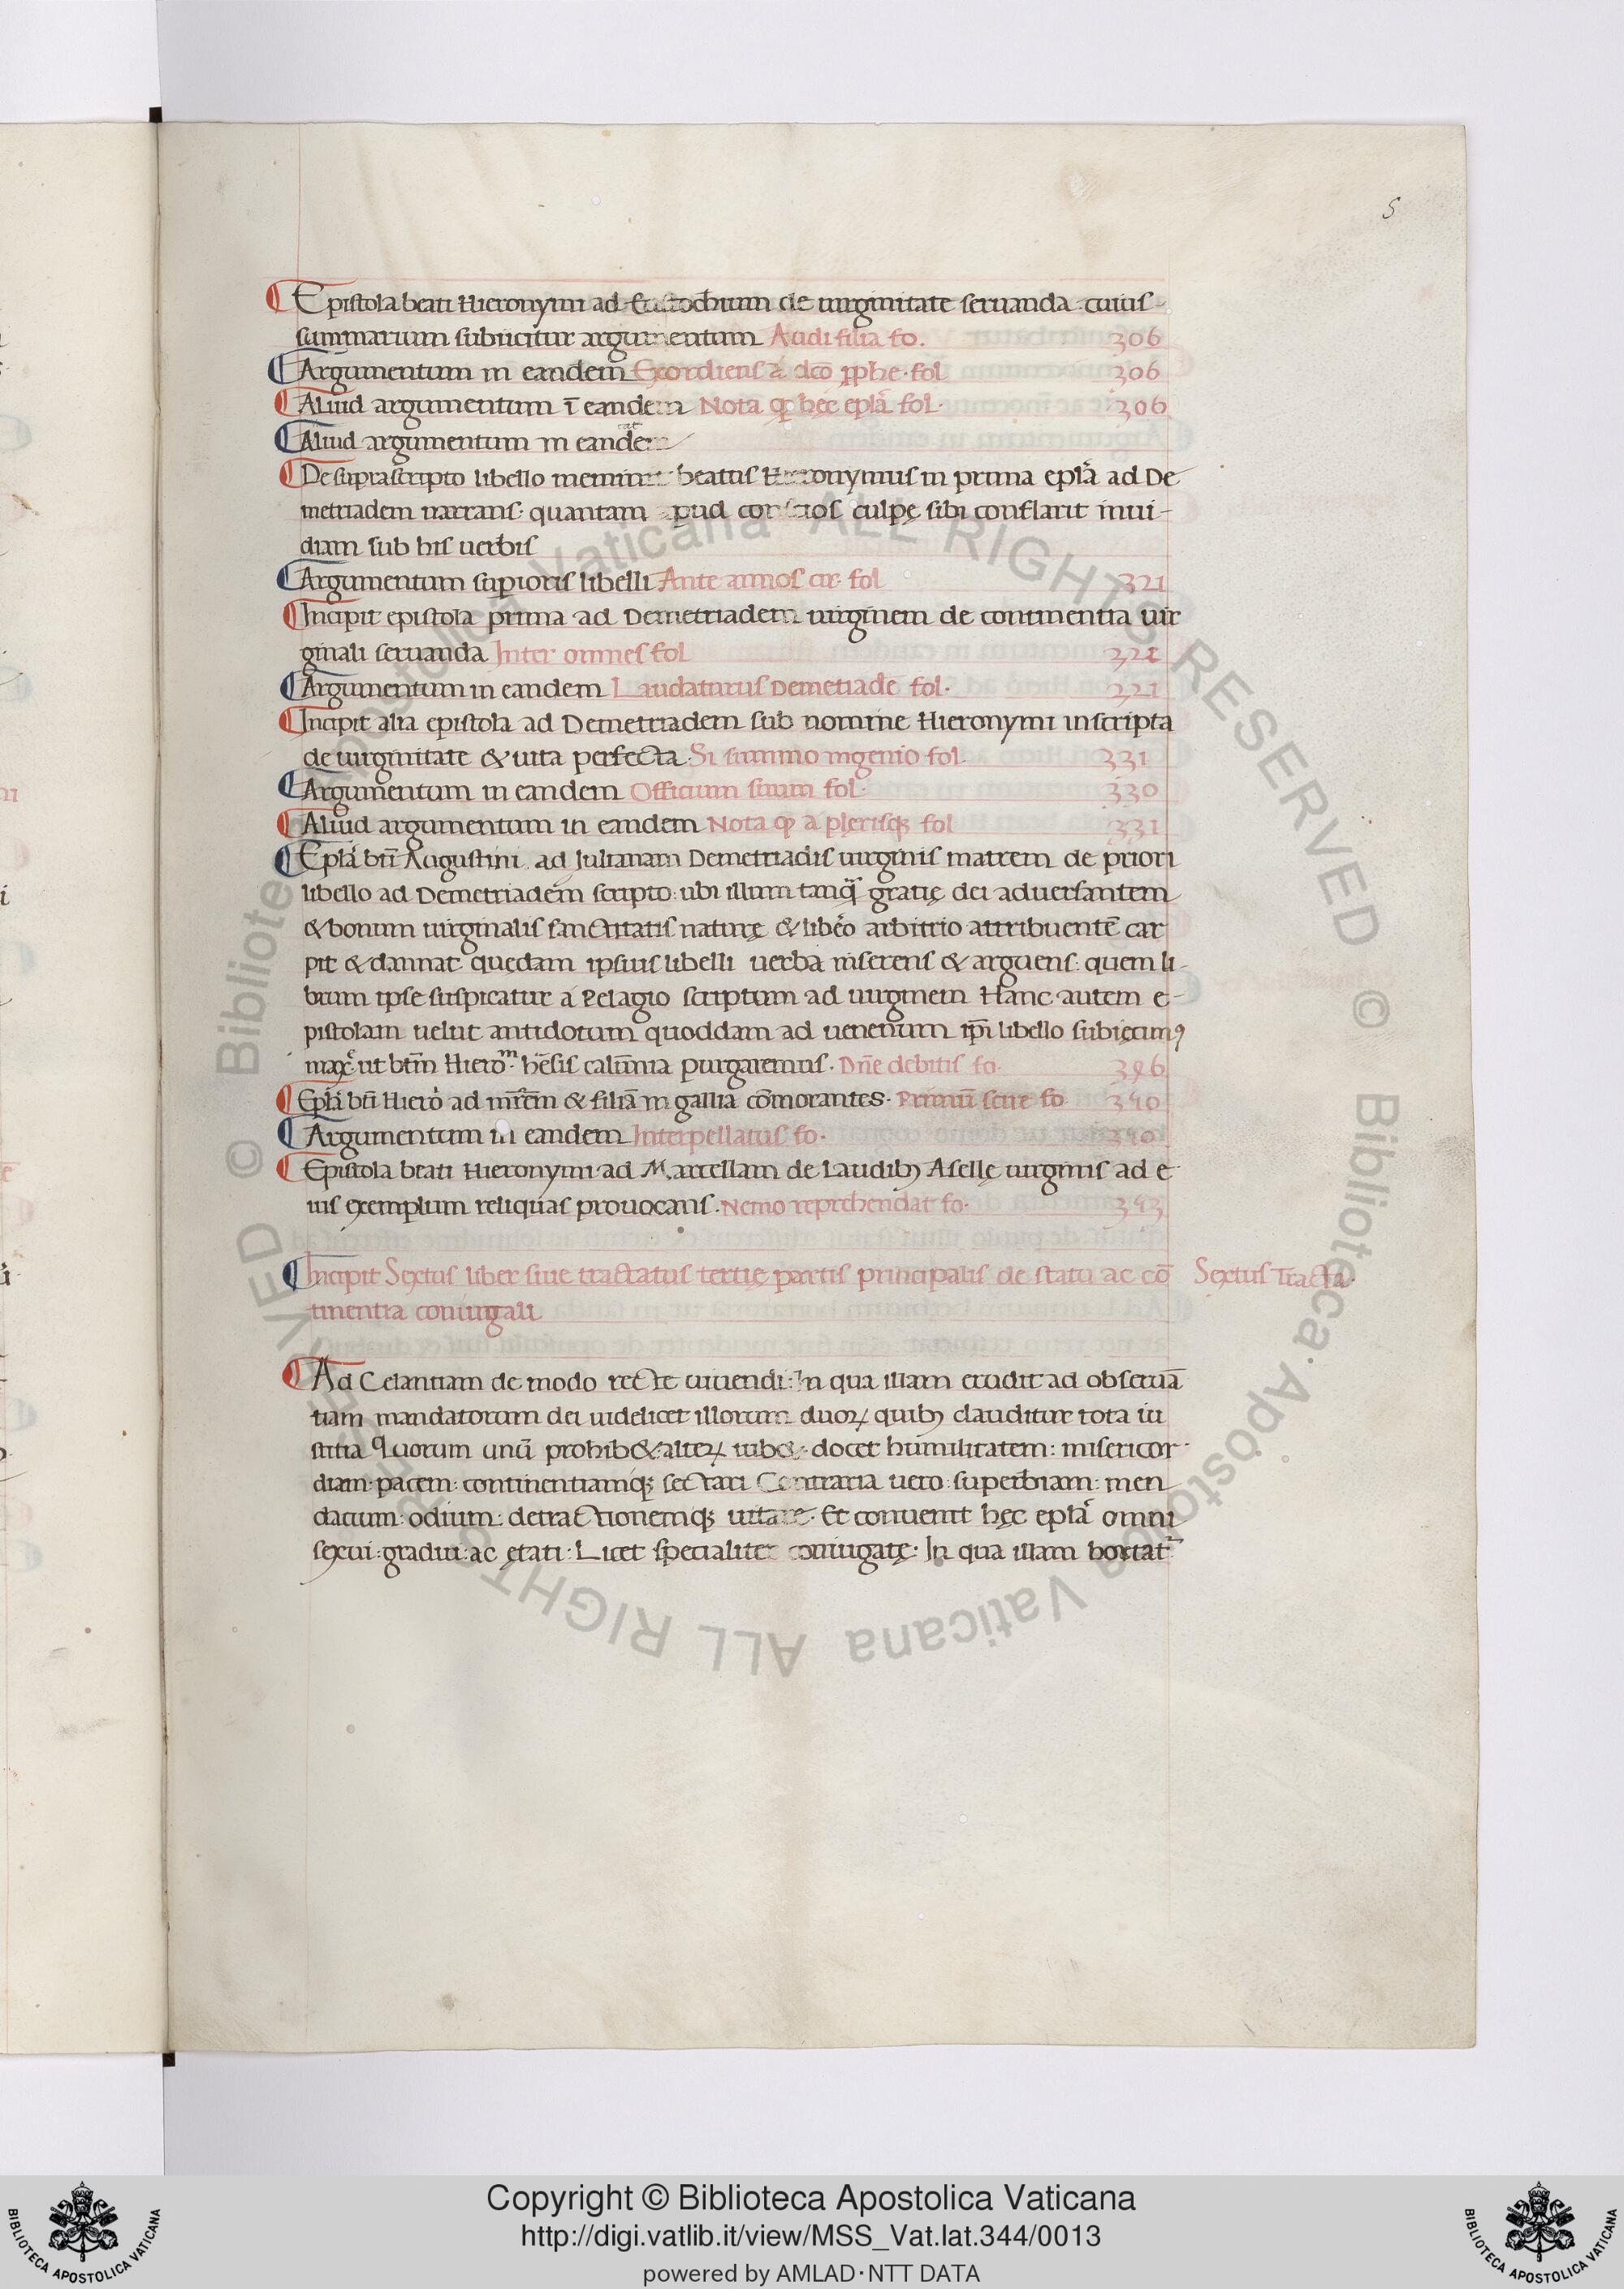 5
Epistola beati Hieronymi ad Eustochium de uirginitate seruanda cuius
summarum subiicitur argumentum Audi filia fo. 306
Argumentum in eandem Exordiens a dco pphe. fol 306
Aliud argumentum ī eandem Nota ꝙ hęc eplā fol. 306
Aliud argumentum in eandem
De suprascripto libello meminit beatus Hieronymus in prima eplā ad De
metriadem narrans quantam apud conscios culpę sibi conflarit inui-
diam sub his uerbis
Argumentum supioris libelli Ante annos cir. fol 321
Incipit epistola prima ad Demetriadem uirginem de continentia uir
ginali seruanda Inter omnes fol 321
Argumentum in eandem Laudaturus Demetiadē fol. 221
Incipit alia epistola ad Demetriadem sub nomine Hieronymi inscripta
de uirginitate & uita perfecta. Si summo ingenio fol. 331
Argumentum in eandem Officium suum fol. 330
Aliud argumentum in eandem Nota ꝙ a plerisqꝫ fol 331
Eplā btī Augustini ad Julianam Demetriadis uirginis matrem de priori
libello ad Demetriadem scripto: ubi illum tanq̄ gratię dei aduersantem
& bonum uirginalis sanctitatis naturę & libēo arbitrio attribuentē car
pit & dannat quędam ipsius libelli uerba inserens & arguens: quem li-
brum ipse suspicatur a Pelagio scriptum ad uirginem Hanc autem e-
pistolam uelut antidotum quoddam ad uenenum ip̄i libello subiecimꝰ
maxē ut btm̄ Hieroᵐ. hēsis calūnia purgaremus. Dn̄e debitis fo. 396
Eplā btī Hierō ad mr̄em & filiā in gallia cōmorantes. Primū scire fo 340
Argumentum in eandem Interpellatus fo. 340
Epistola beati Hieronymi ad Marcellam de laudibꝫ Asellę uirginis ad e
ius exemplum reliquas prouocans. Nemo reprehendat fo. 343
Incipit Sextus liber siue tractatus tertię partis principalis de statu ac cō
tinentia coniugali
Sextus Tracta.
Ad Celantiam de modo recte uiuendi: In qua illam erudit ad obseruā
tiam mandatorum dei uidelicet illorum duoꝝ quibꝫ clauditur tota iu
stitia Quorum unū prohib&: alteꝝ iub&. docet humilitatem: misericor
diam: pacem: continentiamqꝫ sectari Contraria uero: superbiam: men
dacium: odium: detractionemqꝫ uitare. Et conuenit hęc eplā omni
sexui: gradui: ac ętati: Licet specialiter coniugatę. In qua illam hortat̄
Copyright © Biblioteca Apostolica Vaticana
http://digi.vatlib.it/view/MSS_Vat.lat.344/0013
powered by AMLAD·NTT DATA
BIBLIOTECA APOSTOLICA VATICANA
BIBLIOTECA APOSTOLICA VATICANA
© Biblioteca Apostolica Vaticana ALL RIGHTS RESERVED © Biblioteca Apostolica Vaticana ALL RIGHTS RESERVED